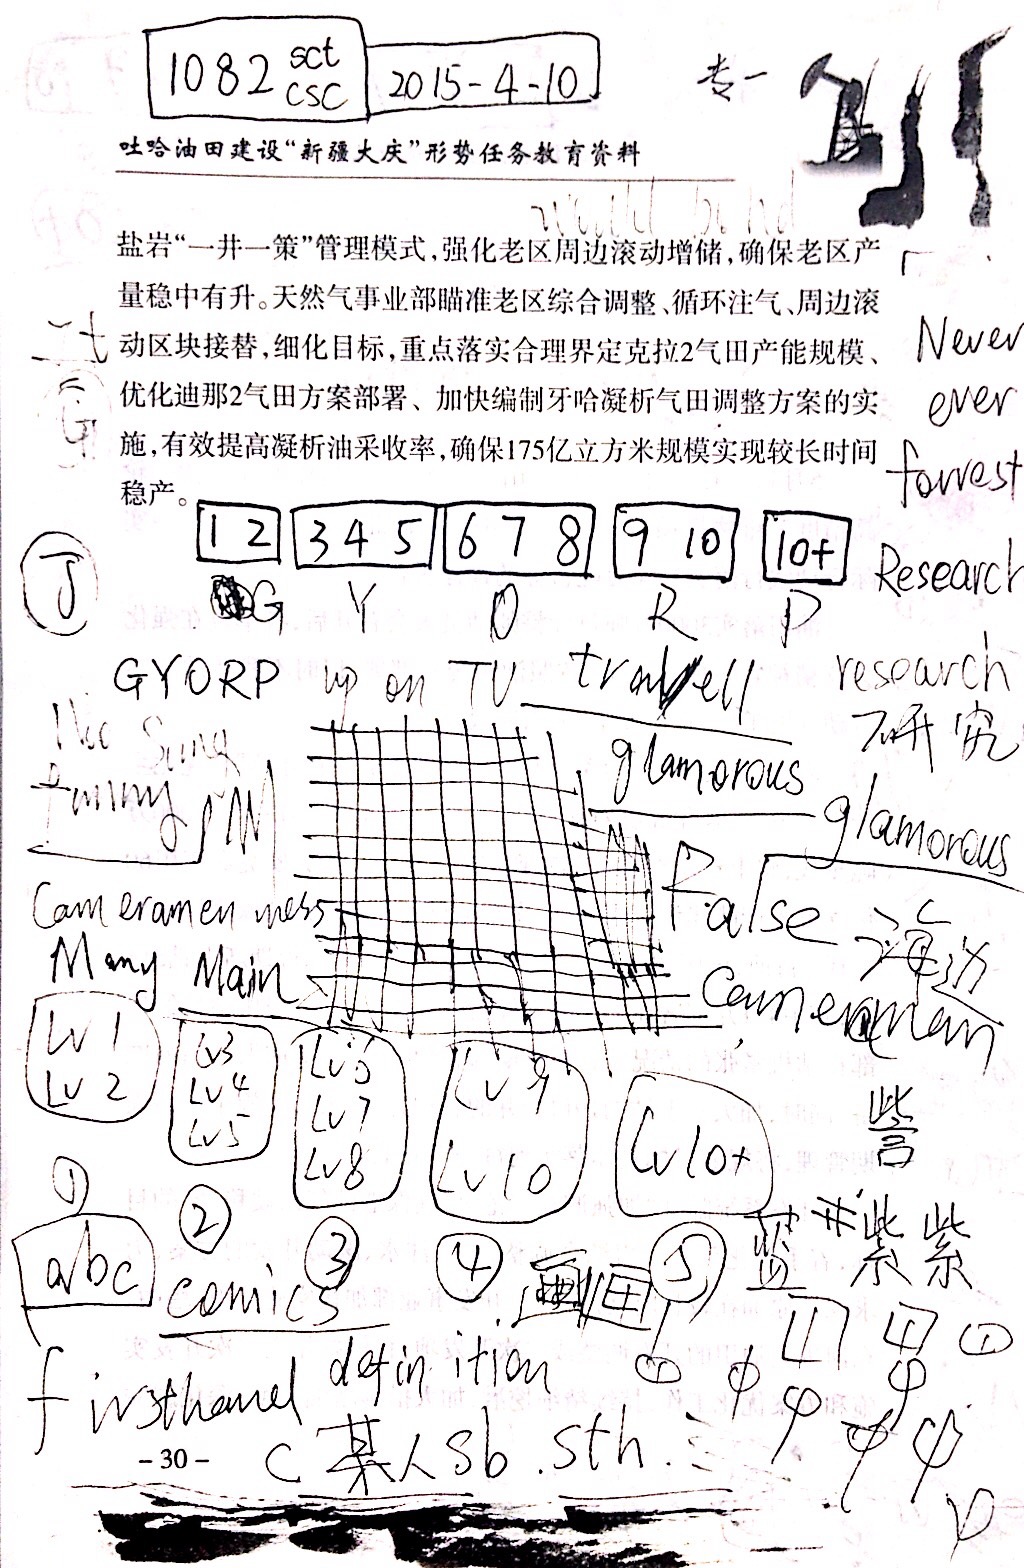 1082 sct csc
2015-4-10
专一
吐哈油田建设“新疆大庆”形势任务教育资料
盐岩“一井一策”管理模式,强化老区周边滚动增储,确保老区产
量稳中有升。天然气事业部瞄准老区综合调整、循环注气、周边滚
动区块接替,细化目标,重点落实合理界定克拉2气田产能规模、
优化迪那2气田方案部署、加快编制牙哈凝析气田调整方案的实
施,有效提高凝析油采收率,确保175亿立方米规模实现较长时间
稳产。
Never
ever
forrest
1 2 3 4 5 6 7 8 9 10 10+
Research
J
G Y O R P
GYORP up on TV
research
研究
glamorous
glamorous
funny
False
Cameramen mess
海边
Many Main
Cameraman
Lv1
Lv2
Lv3
Lv4
Lv5
Lv6
Lv7
Lv8
Lv9
Lv10
Lv10+
訾
① ② ③ ④ ⑤
蓝 紫 紫
abc
comics
画 画
firsthand definition
c 某人 sb. sth.
- 30 -